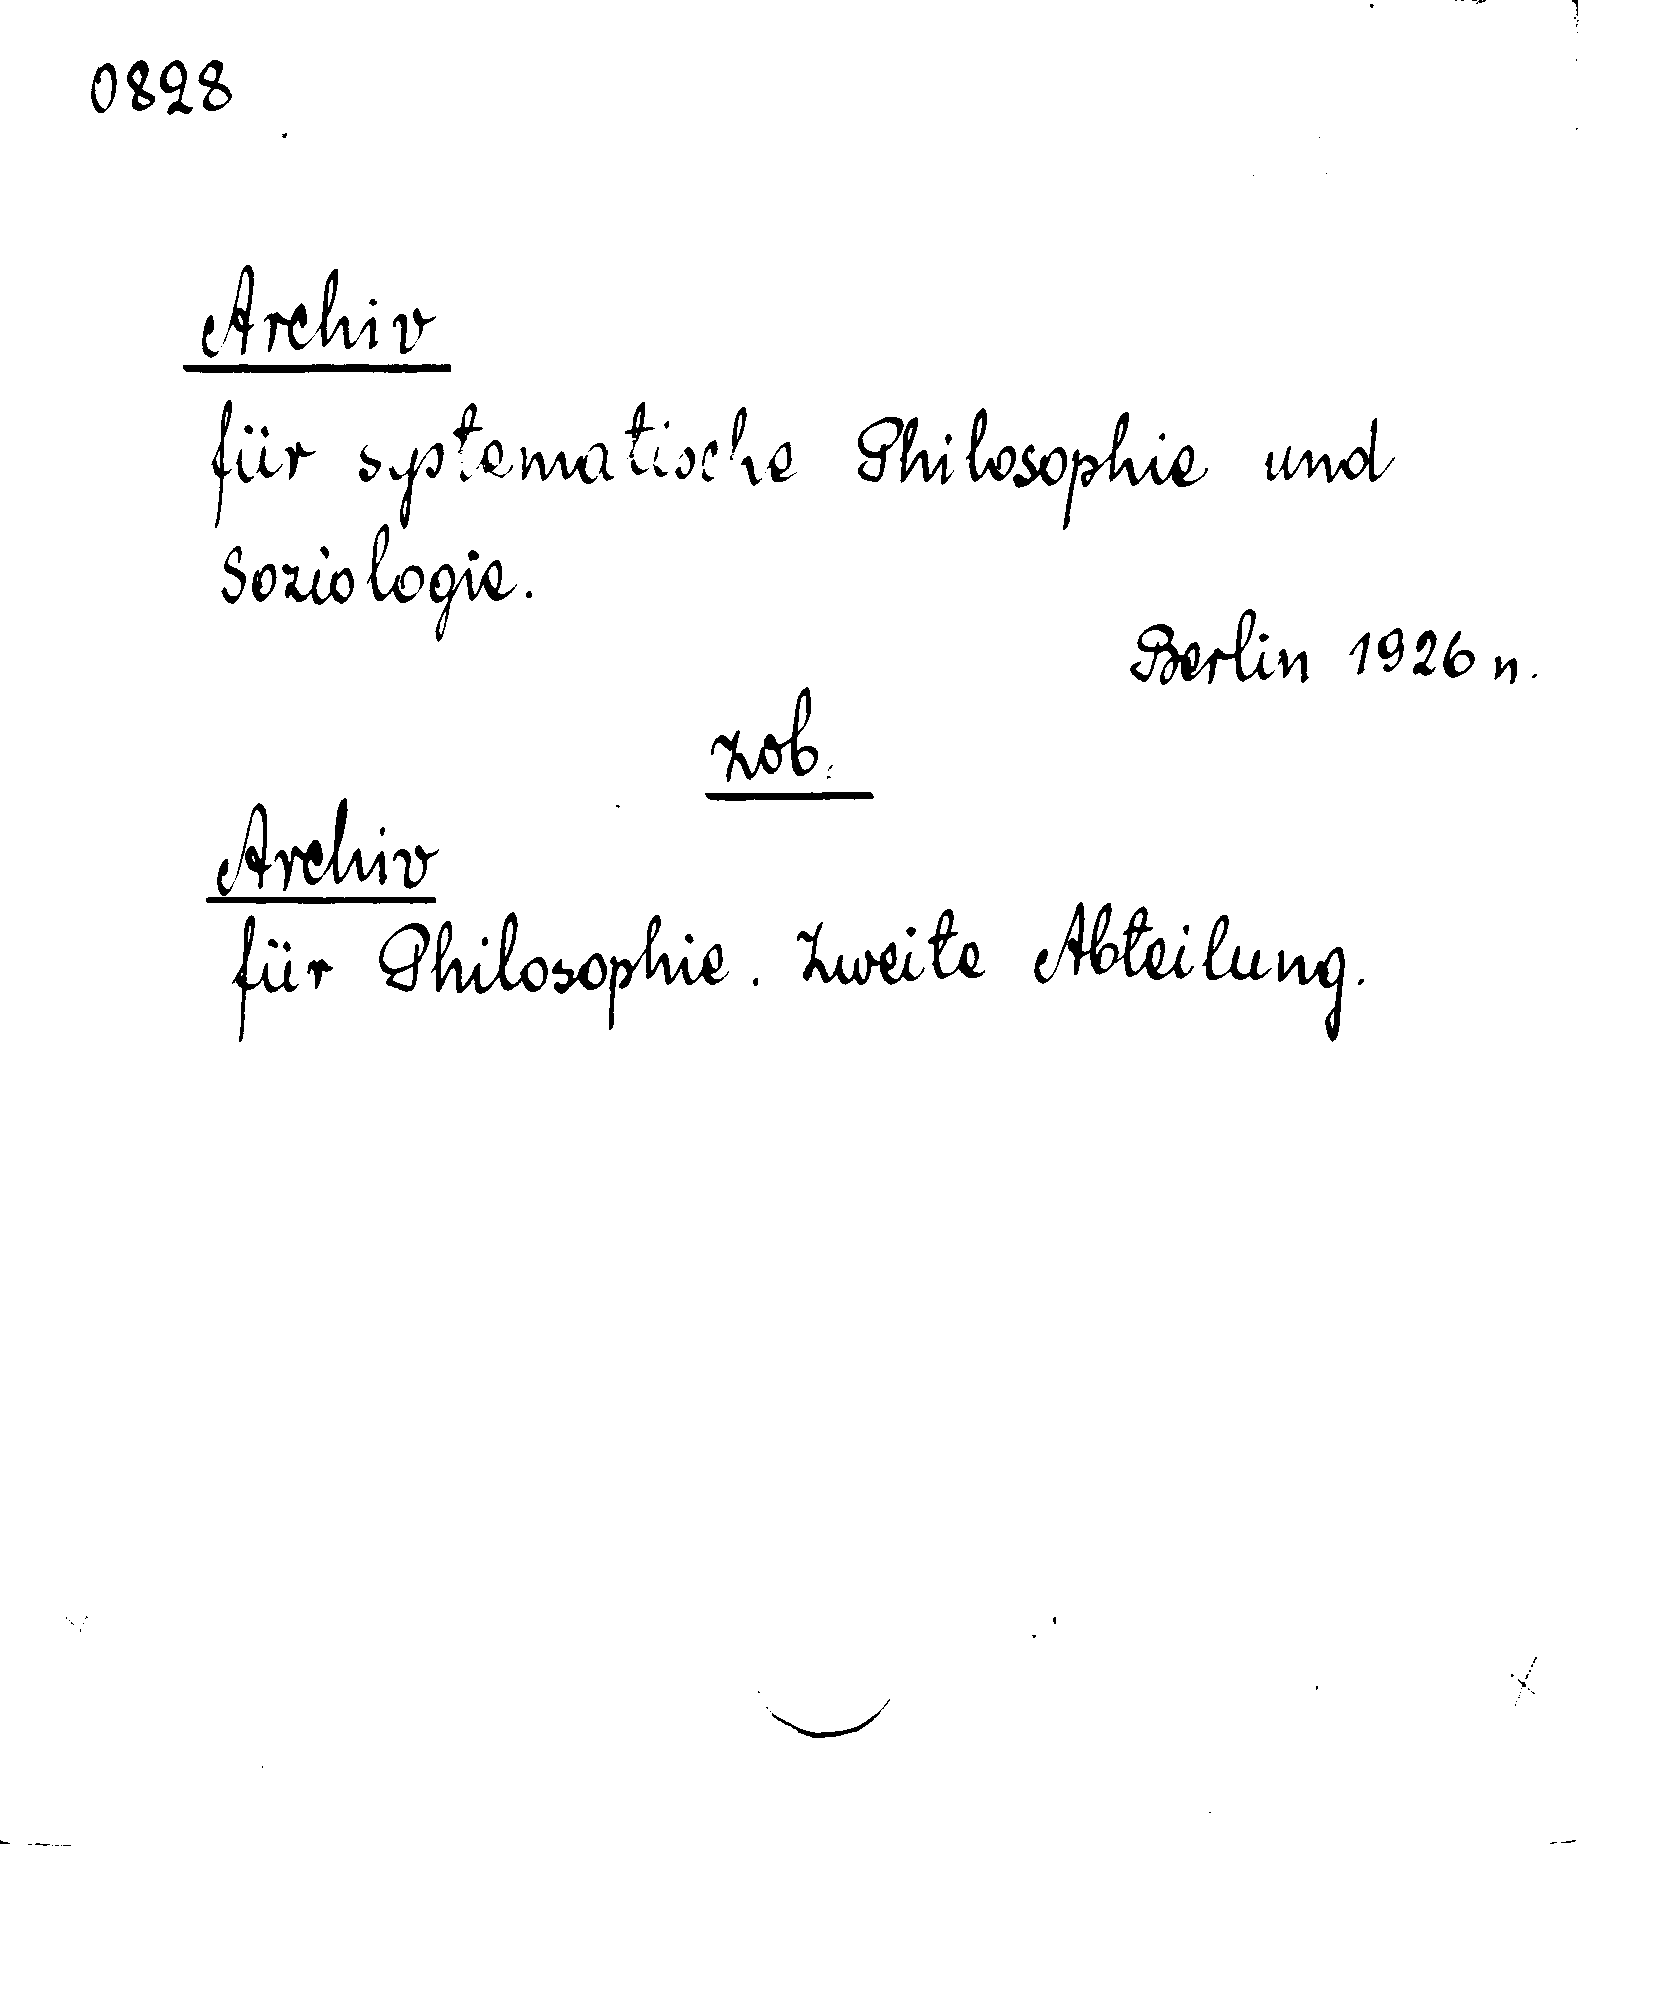 0828
Archiv
für systematische Philosophie und
Soziologie.
Berlin 1926 n.
zob.
Archiv
für Philosophie. Zweite Abteilung.